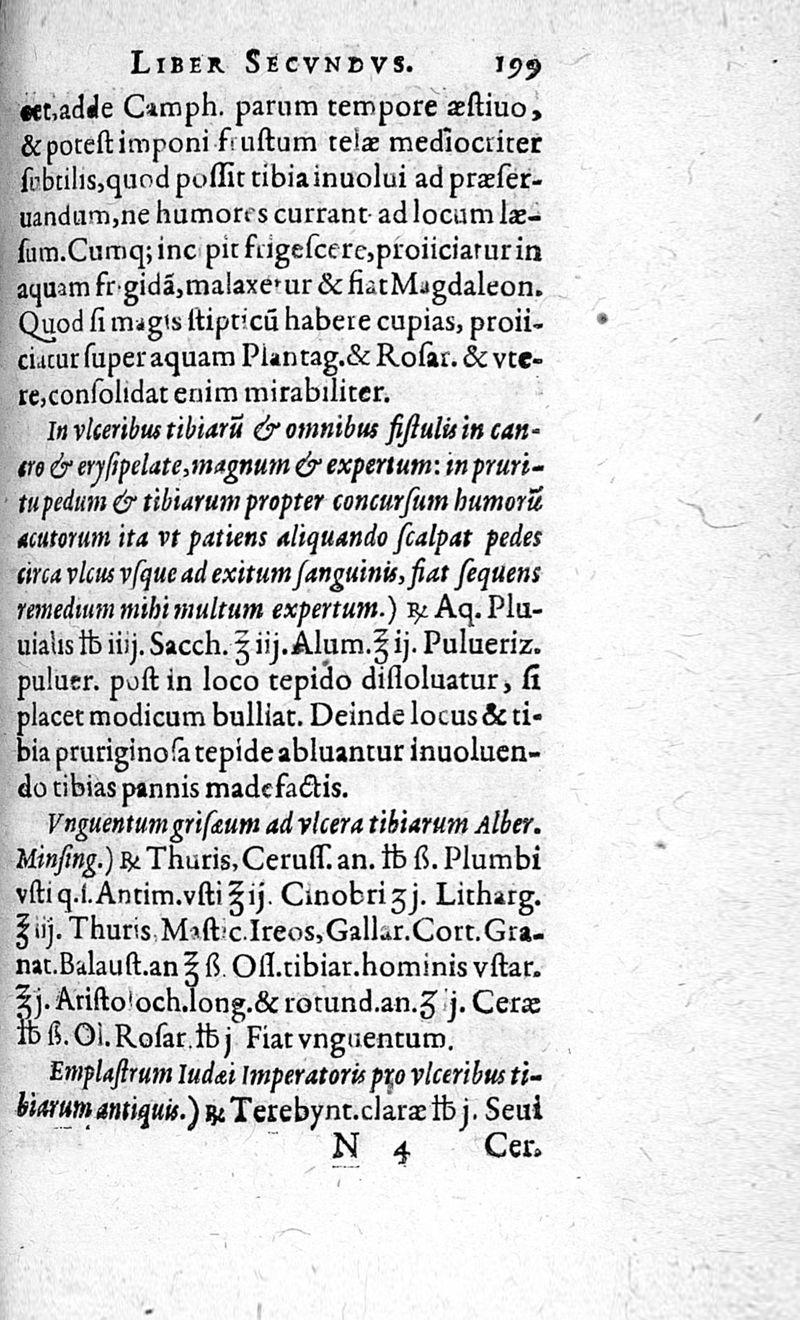 LIBER SECVNDVS. 199
cet, adde Camph. parum tempore æſtiuo,
& poteſt imponi fruſtum telæ mediocriter
ſubtilis, quod poſſit tibia inuolui ad præſer-
uandum, ne humores currant ad locum læ-
ſum. Cumq; incipit frigeſcere, proiiciatur in
aquam frigidã, malaxetur & fiat Magdaleon.
Quod ſi magis ſtipticũ habere cupias, proii-
ciatur ſuper aquam Plantag. & Roſar. & vte-
re, conſolidat enim mirabiliter.
In vlceribus tibiarũ & omnibus fiſtulis in can-
cro & eryſipelate, magnum & expertum: in pruri-
tu pedum & tibiarum propter concurſum humorũ
acutorum ita vt patiens aliquando ſcalpat pedes
circa vlcus vſque ad exitum ſanguinis, fiat ſequens
remedium mihi multum expertum.) ℞ Aq. Plu-
uialis ℔ iiij. Sacch. ℥ iij. Alum. ℥ ij. Pulueriz.
puluer. poſt in loco tepido diſſoluatur, ſi
placet modicum bulliat. Deinde locus & ti-
bia pruriginoſa tepide abluantur inuoluen-
do tibias pannis madefactis.
Vnguentum griſæum ad vlcera tibiarum Alber.
Minſing.) ℞ Thuris, Ceruſſ. an. ℔ ß. Plumbi
vſti q. ſ. Antim. vſti ℥ ij. Cinobri ʒ j. Litharg.
℥ iij. Thuris, Maſtic. Ireos, Gallar. Cort. Gra-
nat. Balauſt. an ℥ ß. Oſſ. tibiar. hominis vſtar.
℥ j. Ariſtoloch. long. & rotund. an. ʒ j. Ceræ
℔ ß. Ol. Roſar. ℔ j Fiat vnguentum.
Emplaſtrum Iudæi Imperatoris pro vlceribus ti-
biarum antiquis.) ℞ Terebynt. claræ ℔ j. Seui
N 4 Cer.